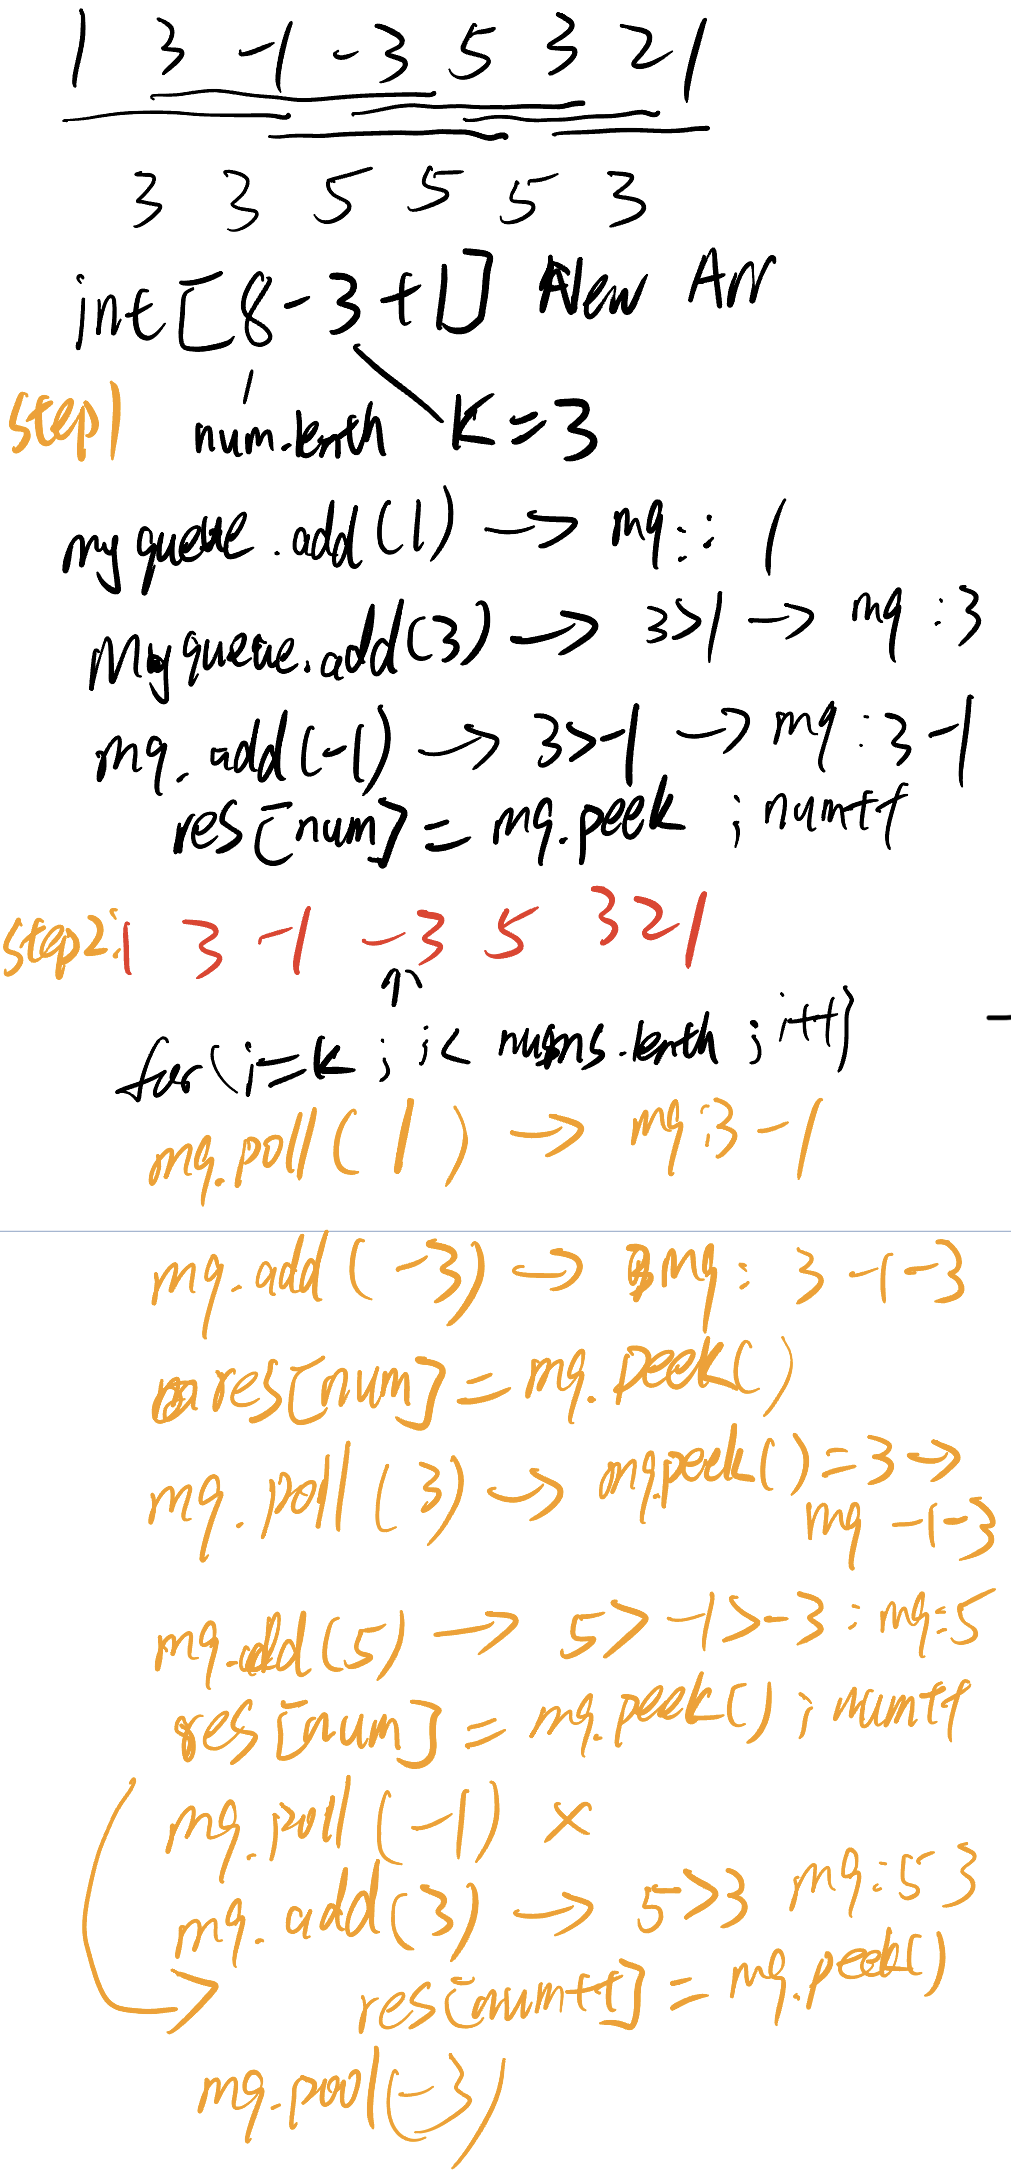 1 3 -1 -3 5 3 2 1
3 3 5 5 5 3
int[8-3+1] New Arr
step1 num.lenth K=3
myqueue.add(1) → mq:: 1
Myqueue.add(3) → 3>1 → mq:3
mq.add(-1) → 3>-1 → mq:3 -1
res[num]=mq.peek ; num++
step2: 1 3 -1 -3 5 3 2 1
↑
for(i=k ; i< nums.lenth ; i++)
mq.poll(1) → mq:3 -1
mq.add(-3) → mq: 3 -1 -3
res[num]=mq.peek()
mq.poll(3) → mq.peek()=3→
mq -1-3
mq.add(5) → 5>-1>-3 : mq:5
res[num]=mq.peek() ; num++
mq.poll(-1) ×
mq.add(3) → 5>3 mq:5 3
res[num++]=mq.peek()
mq.pool(-3)